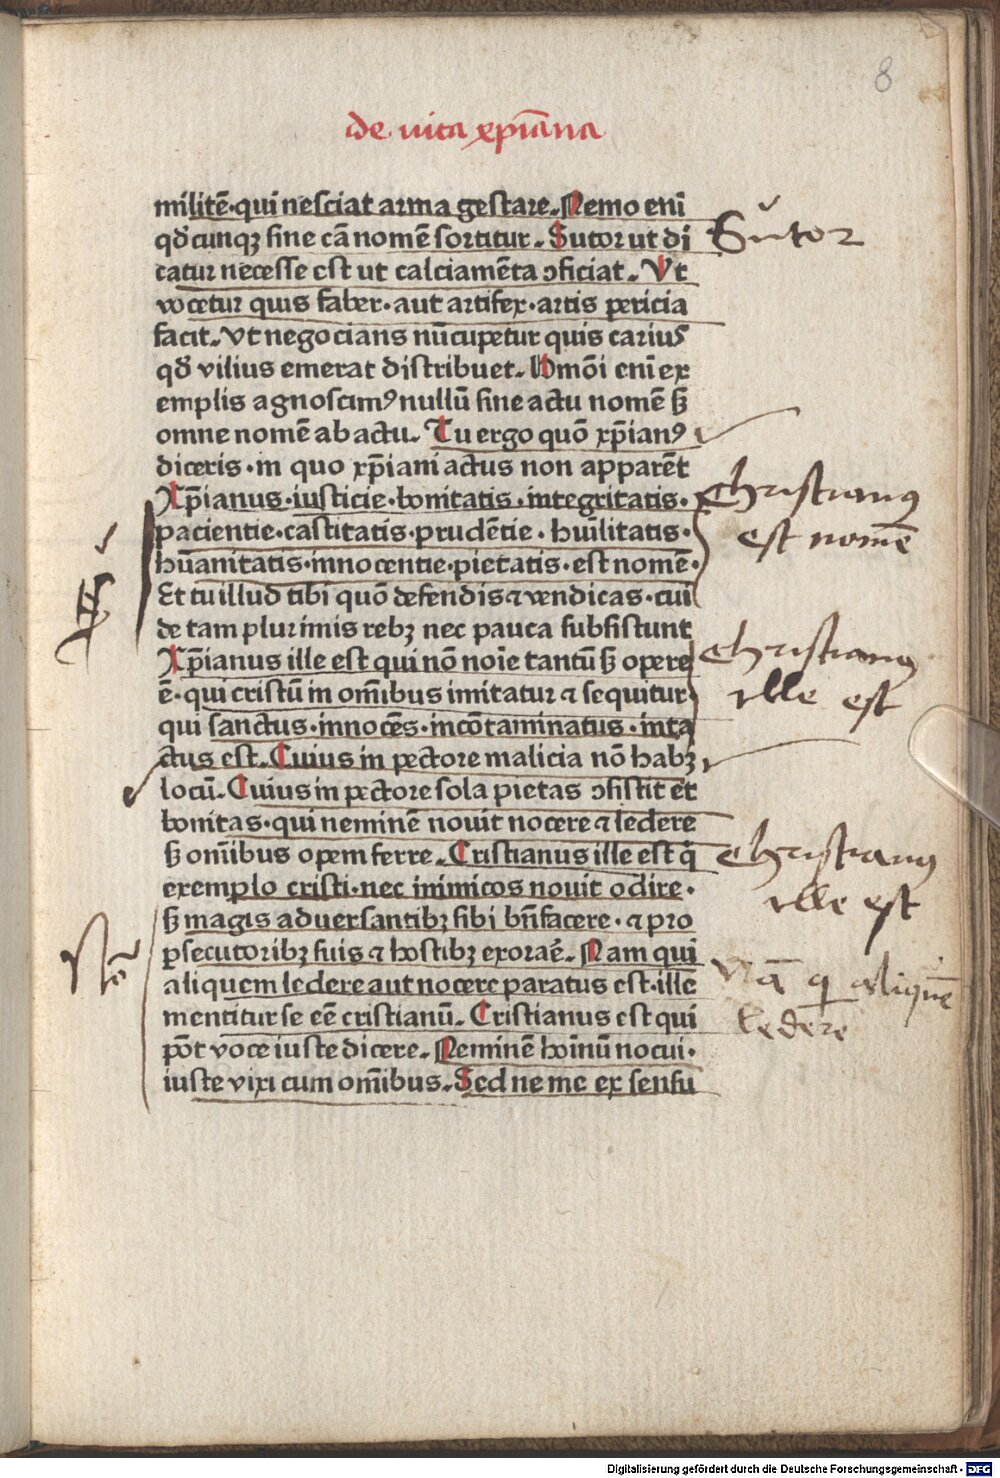 8
de vita xp̄iana
militē·qui nesciat arma gestare. Nemo eni
qd̄cunqꝫ sine cā nomē sortitur. Sutor ut di
catur necesse est ut calciamēta ↄficiat. Ut
vocetur quis faber·aut artifex·artis pericia
facit. Ut negocians nūcupetur quis carius
qd̄ vilius emerat distribuet. Hmōi eni ex
emplis agnoscimꝰ nullū sine actu nomē sꝫ
omne nomē ab actu. Tu ergo quō xp̄ianꝰ
diceris·in quo xp̄iani actus non apparēt
Xp̄ianus·iusticie·bonitatis·integritatis·
pacientie·castitatis·prudētie·hūilitatis·
hūanitatis·innocentie·pietatis·est nomē·
Et tu illud tibi quō defendis ⁊ vendicas·cui
de tam plurimis rebꝫ nec pauca subsistunt
Xp̄ianus ille est qui nō noīe tantū sꝫ opere
ē·qui cristū in om̄ibus imitatur ⁊ sequitur
qui sanctus·innocēs·incōtaminatus·inta
ctus est. Cuius in pectore malicia nō habꝫ
locū. Cuius in pectore sola pietas ↄsistit et
bonitas·qui neminē novit nocere ⁊ ledere
sꝫ om̄ibus opem ferre. Cristianus ille est q̄
exemplo cristi·nec inimicos novit odire·
sꝫ magis adversantibꝫ sibi bn̄facere·⁊ pro
ꝑsecutoribꝫ suis ⁊ hostibꝫ exorare̅. Nam qui
aliquem ledere aut nocere paratus est·ille
mentitur se eē cristianū. Cristianus est qui
pōt voce iuste dicere. Neminē hoīnū nocui·
iuste vixi cum om̄ibus. Sed ne me ex sensu
Sutor
Christianꝰ
est nomē
Christianꝰ
ille est
Christianꝰ
ille est
Nā q aliquē
ledere
Digitalisierung gefördert durch die Deutsche Forschungsgemeinschaft - DFG